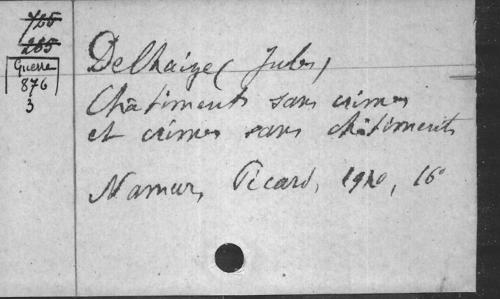 725
285
Guerre
876
3
Delhaize (Jules)
Châtiments sans crimes
et crimes sans châtiments
Namur, Picard, 1920, 16°